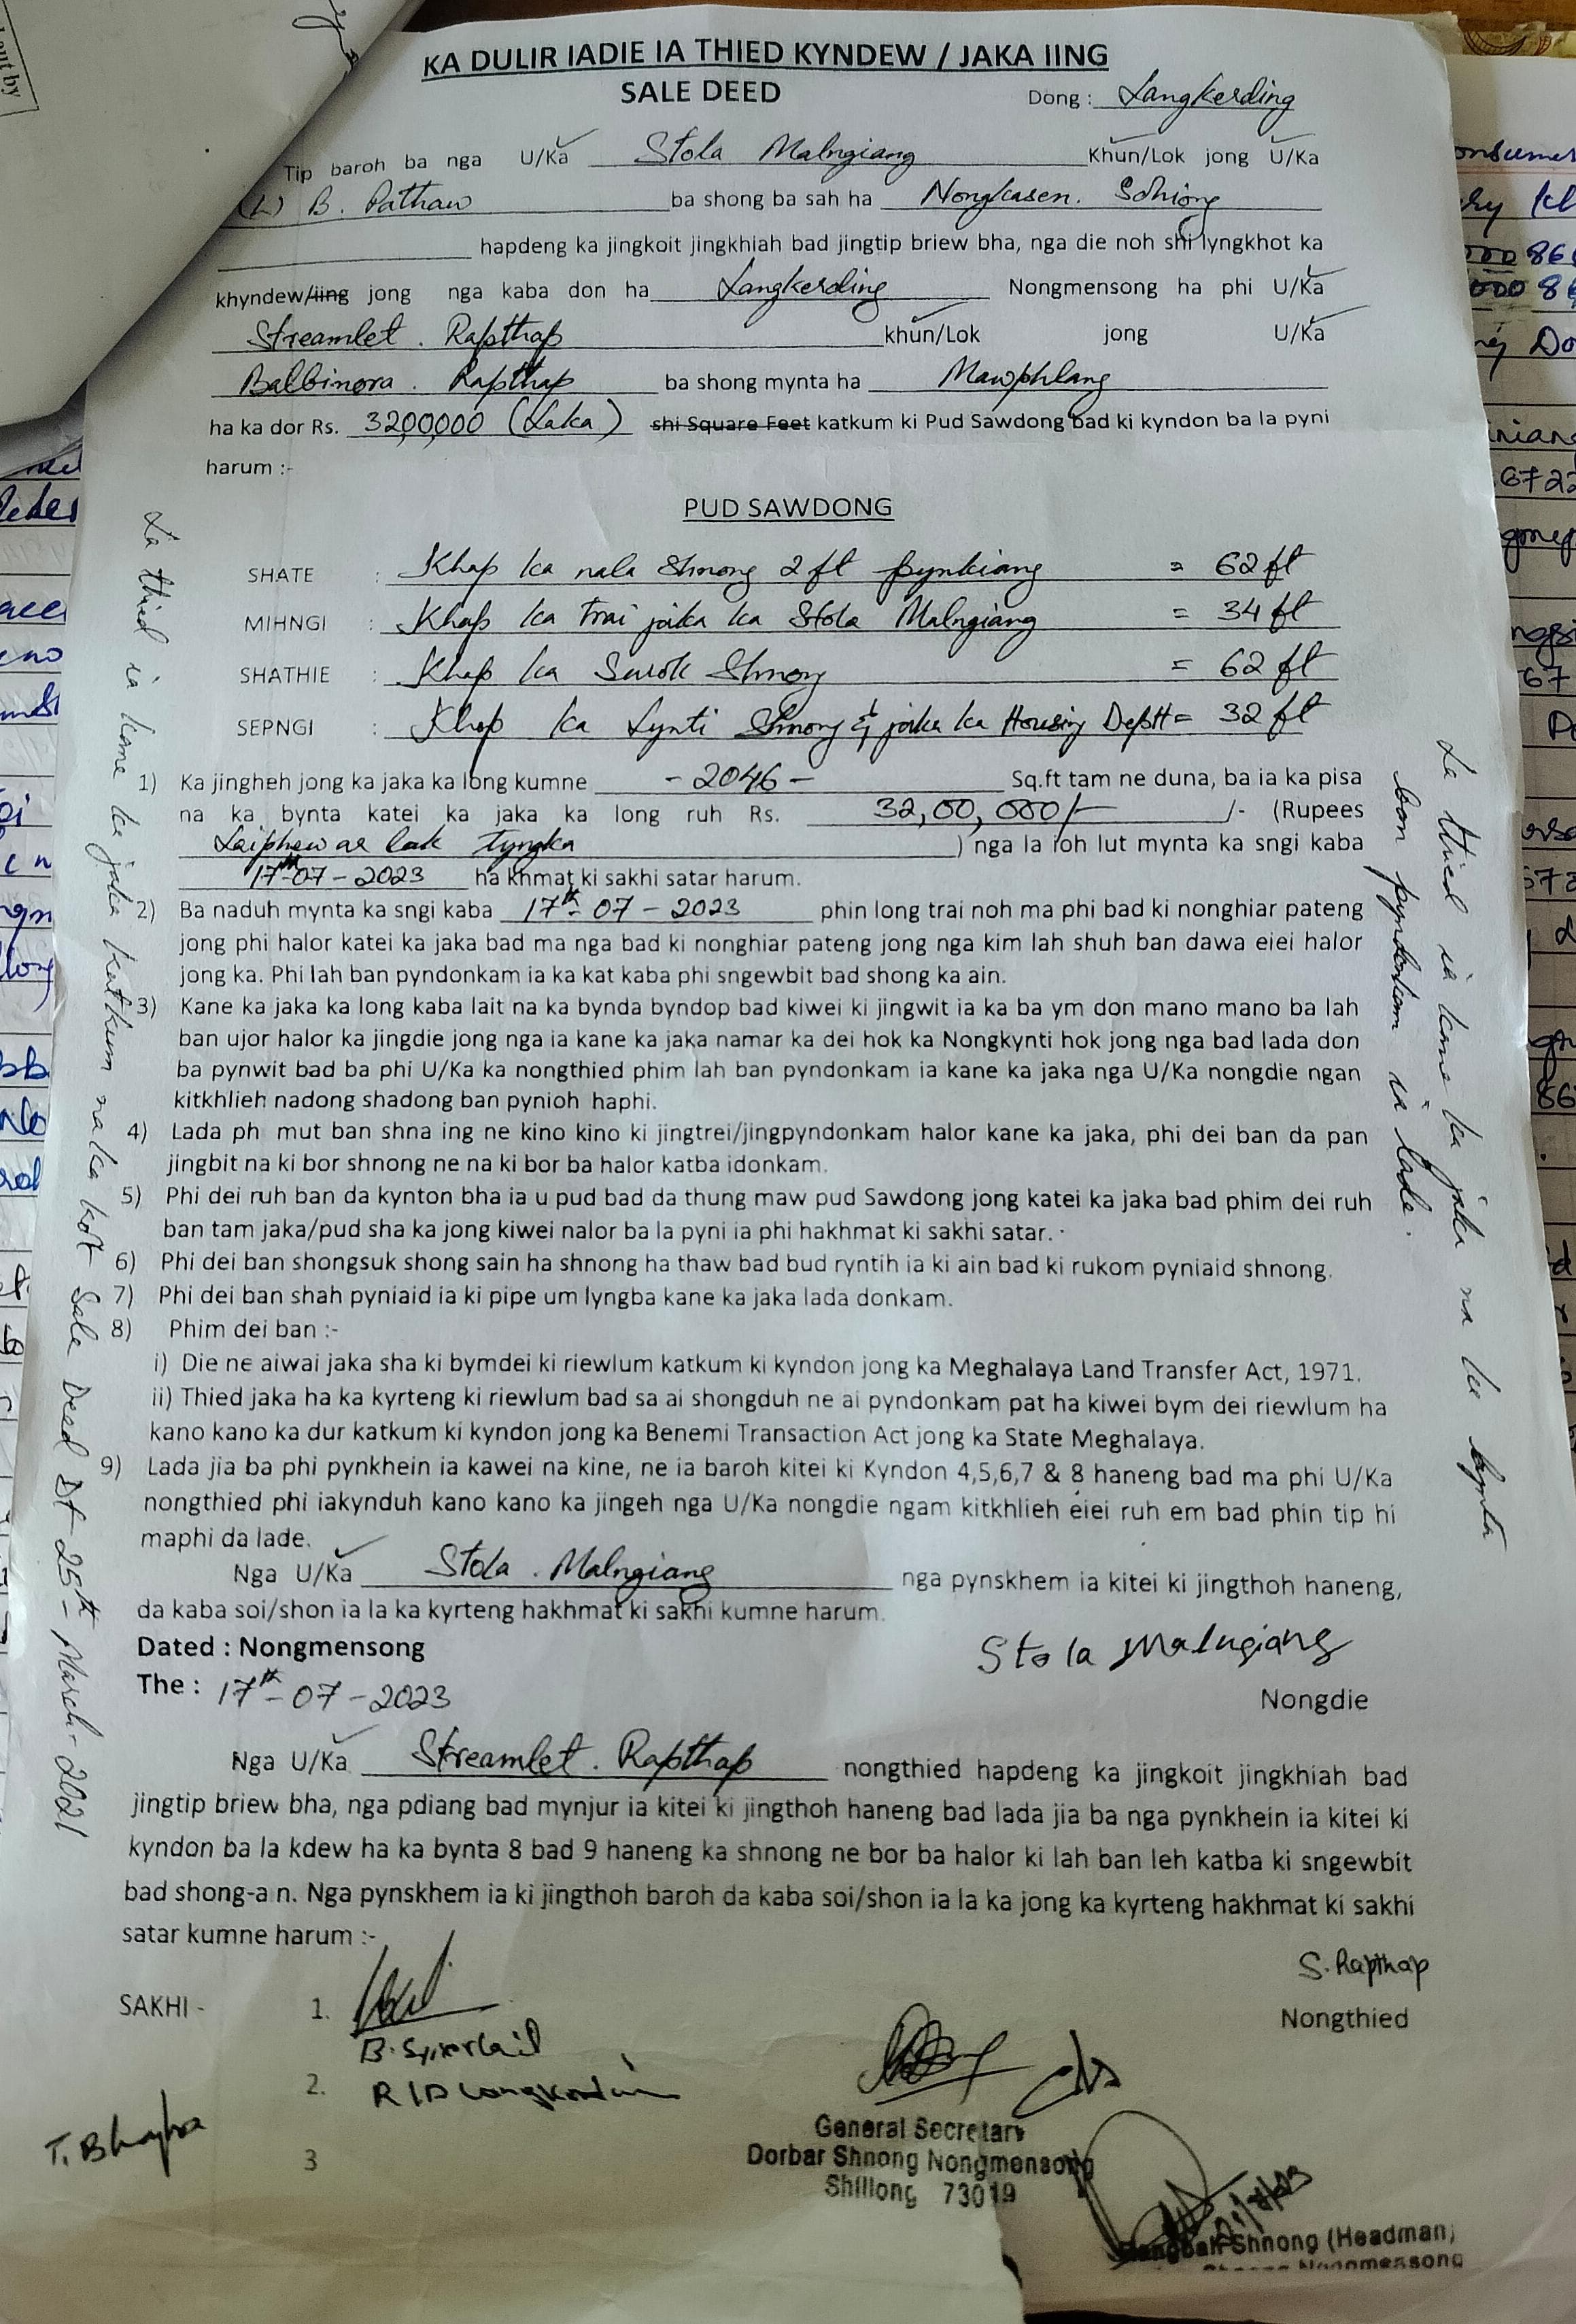 KA DULIR IADIE IA THIED KYNDEW / JAKA IING
SALE DEED
Dong : Langkerding
Tip baroh ba nga U/Ka Stola Malngiang Khun/Lok jong U/Ka
(L) B. Pathaw ba shong ba sah ha Nongkasen. Sohiong
hapdeng ka jingkoit jingkhiah bad jingtip briew bha, nga die noh shi lyngkhot ka
khyndew/iing jong nga kaba don ha Langkerding Nongmensong ha phi U/Ka
Streamlet . Rapthap khun/Lok jong U/Ka
Balbinora . Rapthap ba shong mynta ha Mawphlang
ha ka dor Rs. 3200,000 (Laka) shi Square Feet katkum ki Pud Sawdong bad ki kyndon ba la pyni
harum :-
PUD SAWDONG
SHATE : Khap ka nala Shnong 2 ft pynkiang = 62 ft
MIHNGI : Khap ka trai jaka ka Stola Malngiang = 34 ft
SHATHIE : Khap ka Surok Shnong = 62 ft
SEPNGI : Khap ka Lynti Shnong & jaka ka Housing Deptt = 32 ft
1) Ka jingheh jong ka jaka ka long kumne - 2046 - Sq.ft tam ne duna, ba ia ka pisa
na ka bynta katei ka jaka ka long ruh Rs. 32,00,000/- /- (Rupees
Laiphew ar lak tyngka ) nga la ioh lut mynta ka sngi kaba
17th-07-2023 ha khmat ki sakhi satar harum.
2) Ba naduh mynta ka sngi kaba 17th-07-2023 phin long trai noh ma phi bad ki nonghiar pateng
jong phi halor katei ka jaka bad ma nga bad ki nonghiar pateng jong nga kim lah shuh ban dawa eiei halor
jong ka. Phi lah ban pyndonkam ia ka kat kaba phi sngewbit bad shong ka ain.
3) Kane ka jaka ka long kaba lait na ka bynda byndop bad kiwei ki jingwit ia ka ba ym don mano mano ba lah
ban ujor halor ka jingdie jong nga ia kane ka jaka namar ka dei hok ka Nongkynti hok jong nga bad lada don
ba pynwit bad ba phi U/Ka ka nongthied phim lah ban pyndonkam ia kane ka jaka nga U/Ka nongdie ngan
kitkhlieh nadong shadong ban pynioh haphi.
4) Lada ph mut ban shna ing ne kino kino ki jingtrei/jingpyndonkam halor kane ka jaka, phi dei ban da pan
jingbit na ki bor shnong ne na ki bor ba halor katba idonkam.
5) Phi dei ruh ban da kynton bha ia u pud bad da thung maw pud Sawdong jong katei ka jaka bad phim dei ruh
ban tam jaka/pud sha ka jong kiwei nalor ba la pyni ia phi hakhmat ki sakhi satar.
6) Phi dei ban shongsuk shong sain ha shnong ha thaw bad bud ryntih ia ki ain bad ki rukom pyniaid shnong.
7) Phi dei ban shah pyniaid ia ki pipe um lyngba kane ka jaka lada donkam.
8) Phim dei ban :-
i) Die ne aiwai jaka sha ki bymdei ki riewlum katkum ki kyndon jong ka Meghalaya Land Transfer Act, 1971.
ii) Thied jaka ha ka kyrteng ki riewlum bad sa ai shongduh ne ai pyndonkam pat ha kiwei bym dei riewlum ha
kano kano ka dur katkum ki kyndon jong ka Benemi Transaction Act jong ka State Meghalaya.
9) Lada jia ba phi pynkhein ia kawei na kine, ne ia baroh kitei ki Kyndon 4,5,6,7 & 8 haneng bad ma phi U/Ka
nongthied phi iakynduh kano kano ka jingeh nga U/Ka nongdie ngam kitkhlieh eiei ruh em bad phin tip hi
maphi da lade.
Nga U/Ka Stola . Malngiang nga pynskhem ia kitei ki jingthoh haneng,
da kaba soi/shon ia la ka kyrteng hakhmat ki sakhi kumne harum.
Dated : Nongmensong
Stola Malngiang
The : 17th-07-2023
Nongdie
Nga U/Ka Streamlet . Rapthap nongthied hapdeng ka jingkoit jingkhiah bad
jingtip briew bha, nga pdiang bad mynjur ia kitei ki jingthoh haneng bad lada jia ba nga pynkhein ia kitei ki
kyndon ba la kdew ha ka bynta 8 bad 9 haneng ka shnong ne bor ba halor ki lah ban leh katba ki sngewbit
bad shong-a n. Nga pynskhem ia ki jingthoh baroh da kaba soi/shon ia la ka jong ka kyrteng hakhmat ki sakhi
satar kumne harum :-
S. Rapthap
Nongthied
SAKHI - 1.
2.
3
General Secretary
Dorbar Shnong Nongmensong
Shillong 73019
Shnong (Headman)
Nongmensong
La thied ia kane ka jaka katkum na ka kot Sale Deed Dt 25th March - 2021
La thied ia kane ka jaka na ka bynta
ban pyndonkam ia lade.